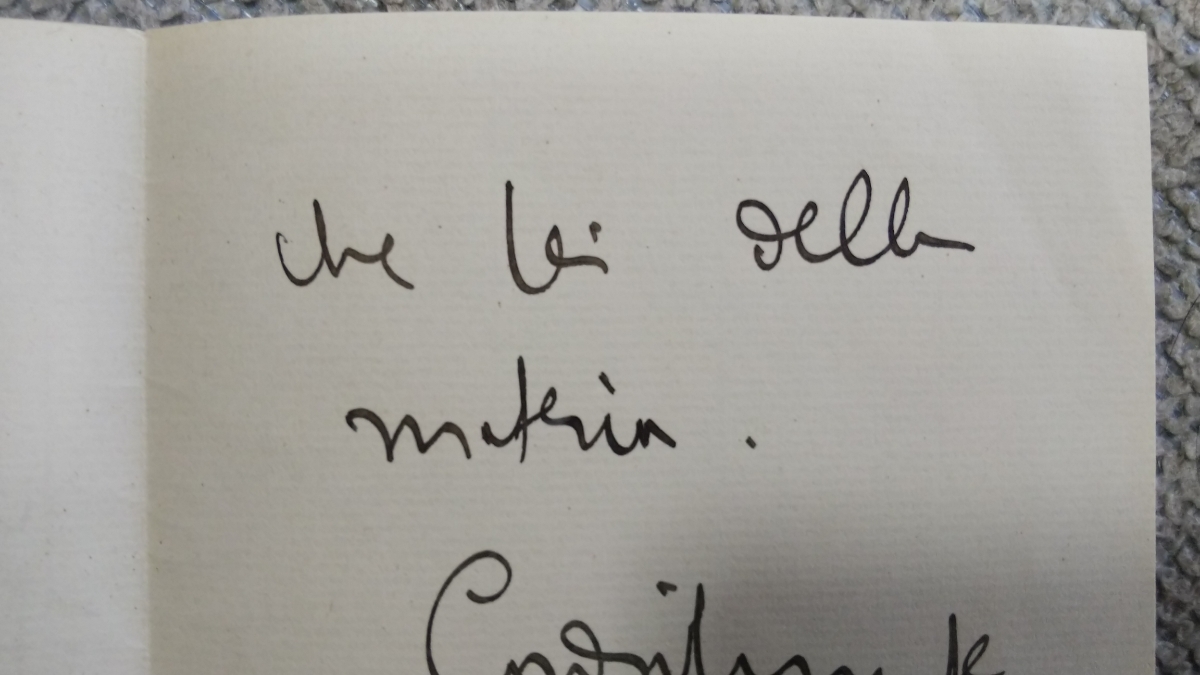 che lei della
materia.
Cordialmente